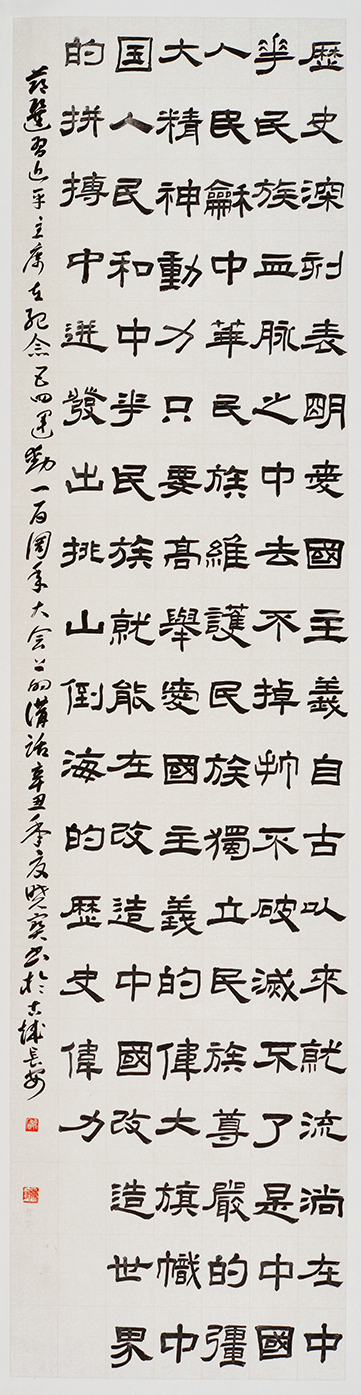 歷史深刻表明愛國主義自古以來就流淌在中
华民族血脉之中去不掉打不破滅不了是中國
人民龢中華民族維護民族獨立民族尊嚴的彊
大精神動力只要高舉愛國主義的偉大旗幟中
国人民和中华民族就能在改造中國改造世界
的拼搏中迸發出排山倒海的歷史偉力
节選習近平主席在紀念五四運動一百周年大会上的講話辛丑季夏晓寶书於古城長安